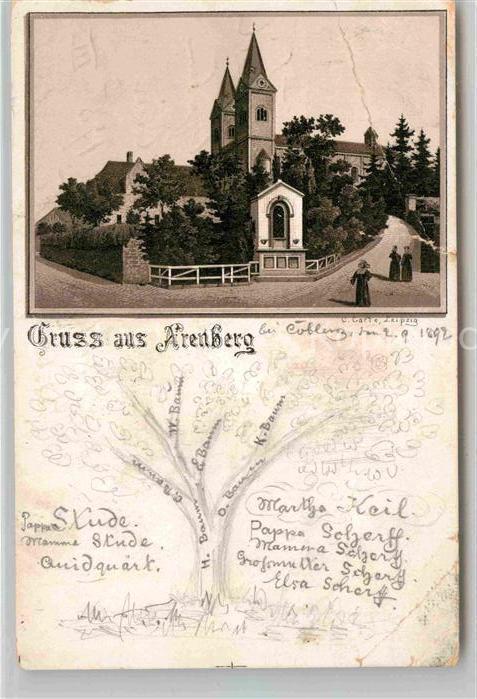 C. Garte, Leipzig
Gruss aus Arenberg bei Coblenz, den 2. 9. 1892
W. Baum
E. Baum
K. Baum
D. Baum
H. Baum
Pappa Skude.
Mamma Skude.
Quidquärt.
Martha Keil.
Pappa Scherff.
Mamma Scherff.
Großmutter Scherff.
Elsa Scherff.